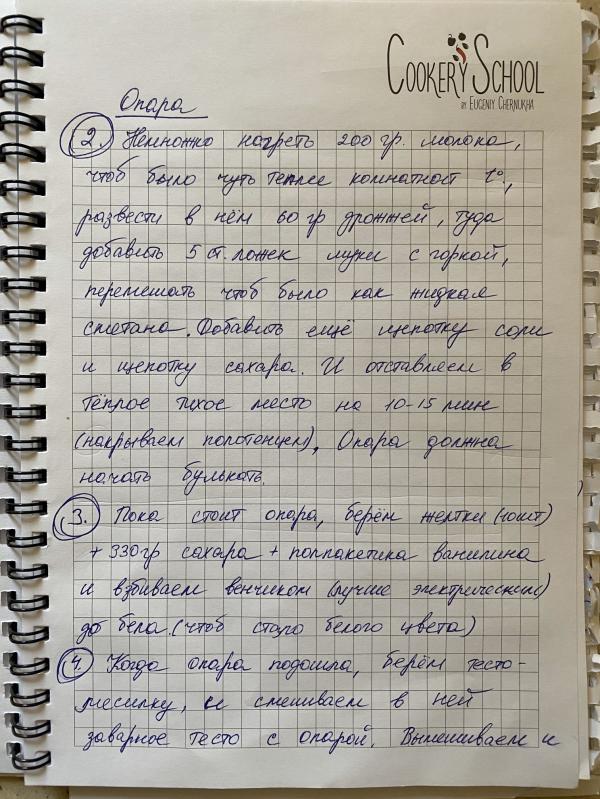 COOKERY SCHOOL
BY EUGENIY CHERNUKHA
Опара
2. Немножко нагреть 200 гр. молока,
чтоб было чуть теплее комнатной t°,
развести в нём 60 гр дрожжей, туда
добавить 5 ст. ложек муки с горкой,
перемешать чтоб было как жидкая
сметана. Добавить ещё щепотку соли
и щепотку сахара. И отставляем в
тёплое тихое место на 10-15 мин
(накрываем полотенцем). Опара должна
начать булькать.
3. Пока стоит опара, берём желтки (10шт)
+ 330гр сахара + полпакетика ванилина
и взбиваем венчиком (лучше электрическим)
до бела. (чтоб стало белого цвета)
4. Когда опара подошла, берём тесто-
месилку, и смешиваем в ней
заварное тесто с опарой. Вымешиваем и